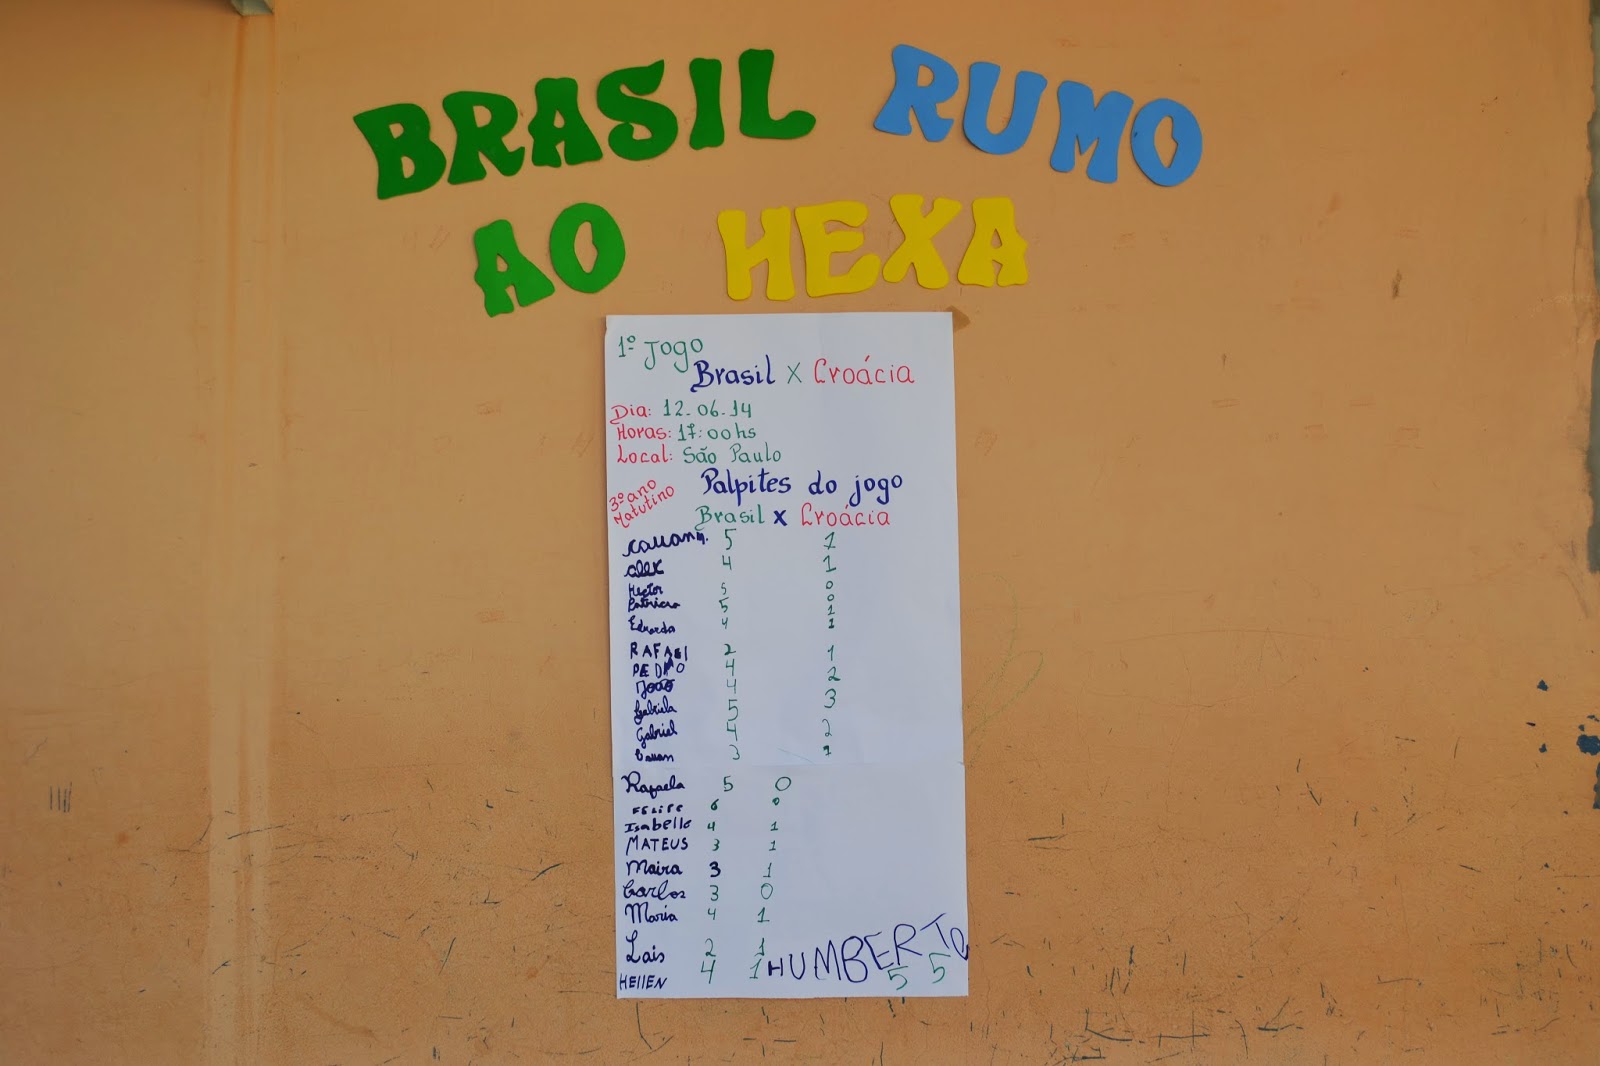 BRASIL RUMO
AO HEXA
1º Jogo
Brasil X Croácia
Dia: 12.06.14
Horas: 17:00hs
Local: São Paulo
Palpites do jogo
3º ano
Matutino
Brasil X Croácia
Kauan M. 5 1
Alex 4 1
Hector 5 0
Patricia 5 0
Eduarda 4 1
RAFAEl 2 1
PEDRO 4 1
João 4 2
Gabriela 5 3
Gabriel 4 2
Cauan 3 1
Rafaela 5 0
FELIPE 6 0
Isabelle 4 1
MATEUS 3 1
Maira 3 1
Carlos 3 0
Maria 4 1
Lais 2 1
HEllEN 4 1
HUMBERTO
5 5